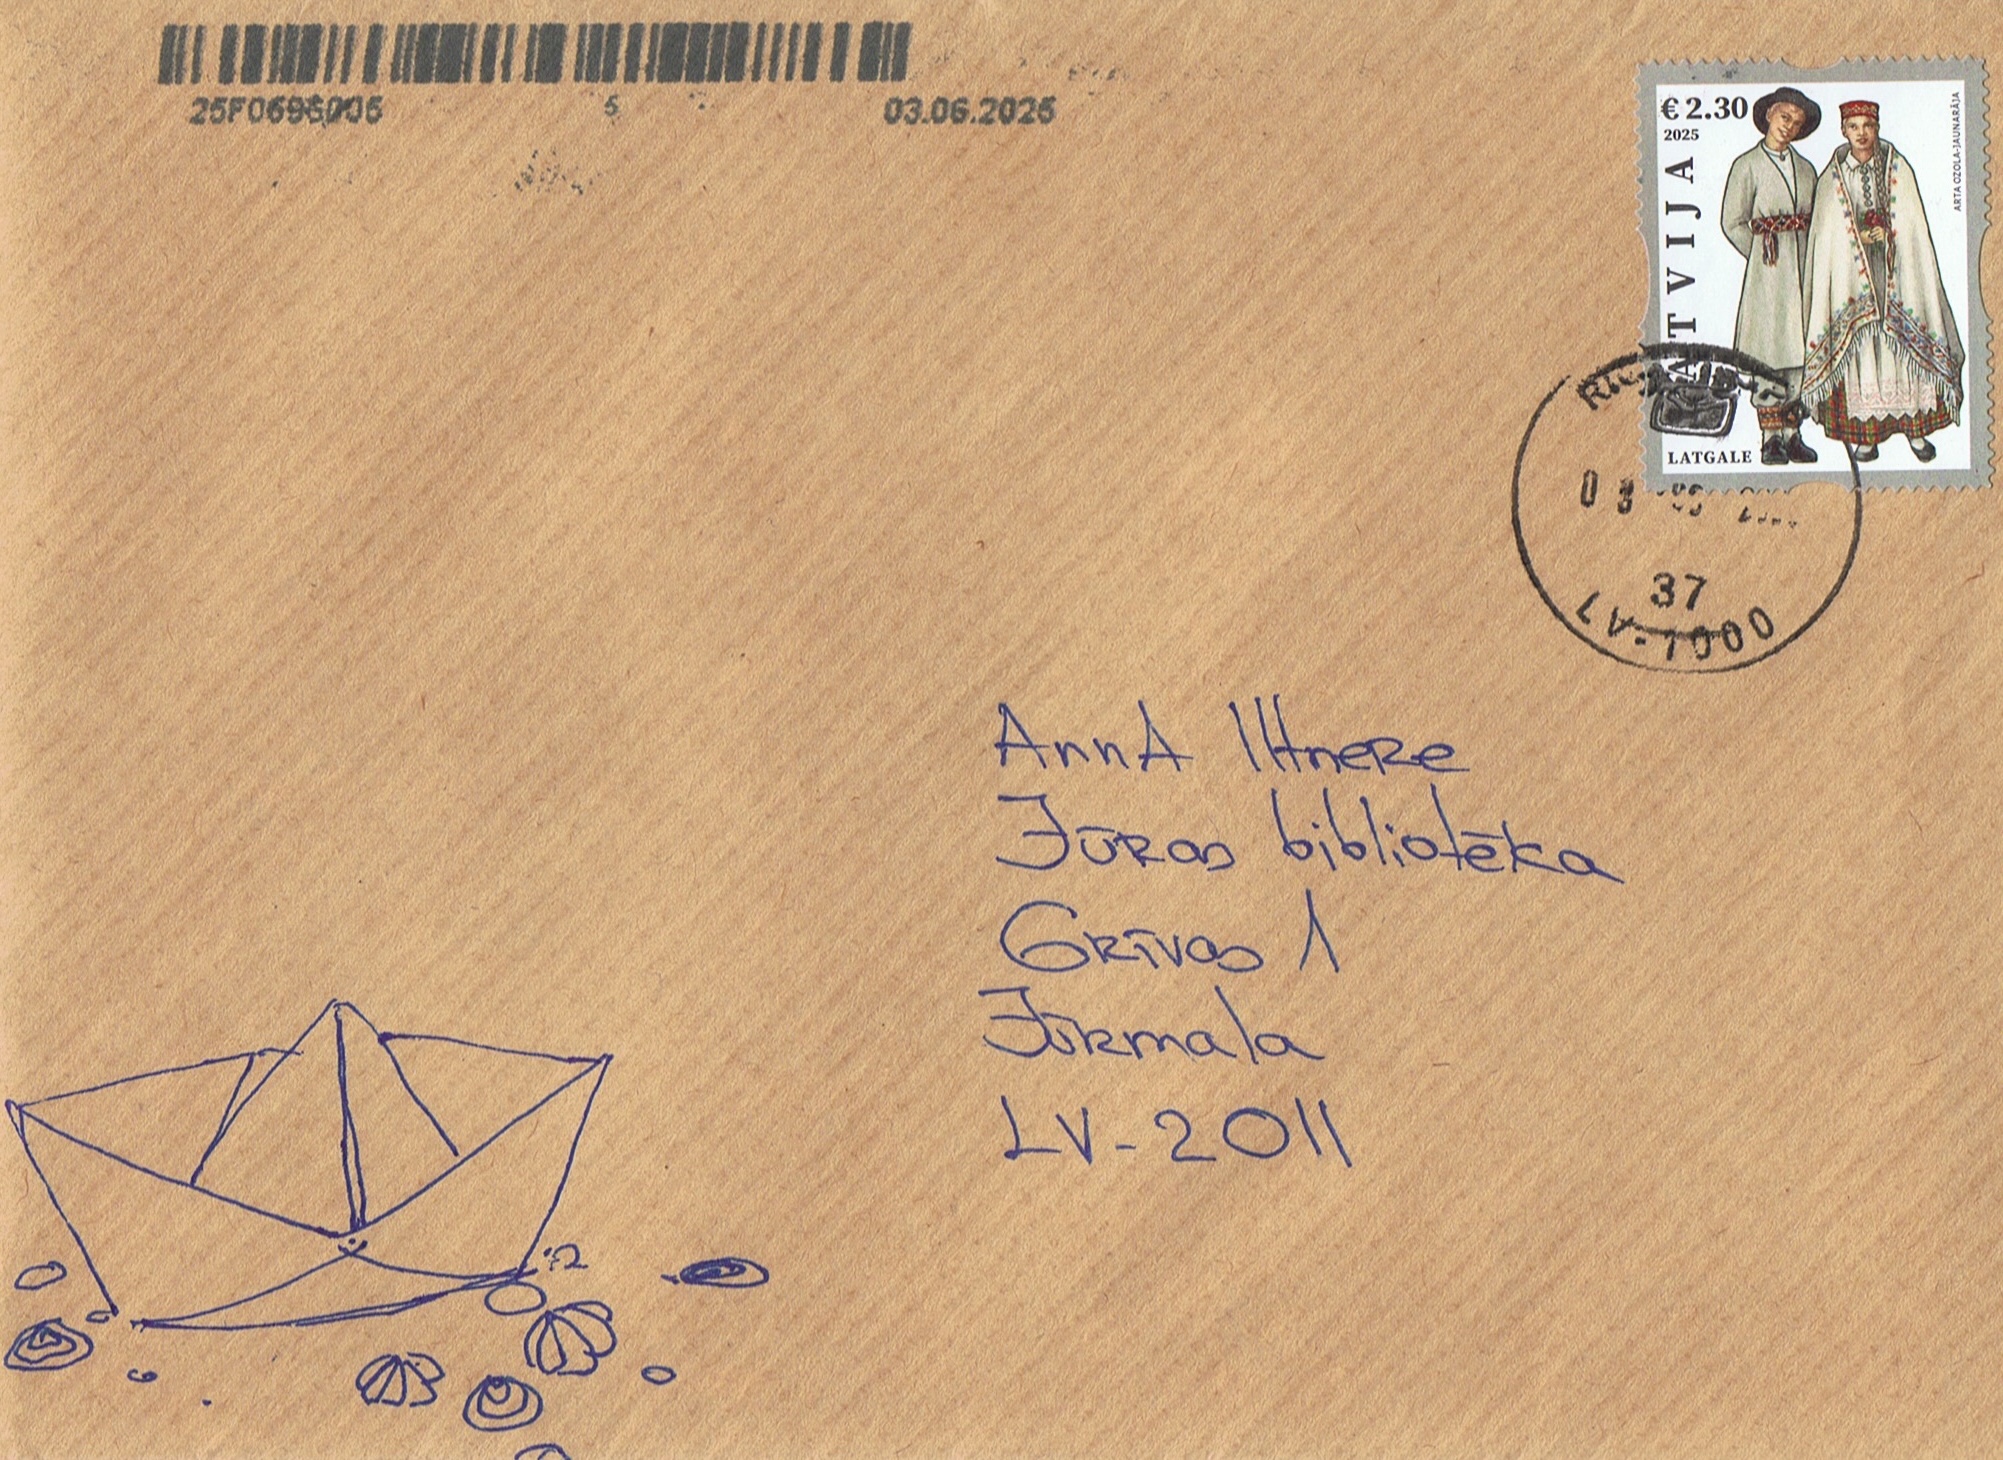 5
03.06.2025
€ 2.30
2025
LATVIJA
ARTA OZOLA-JAUNARĀJA
LATGALE
37
LV-1000
AnnA Iltnere
Jūras bibliotēka
Grīvas 1
Jūrmala
LV-2011